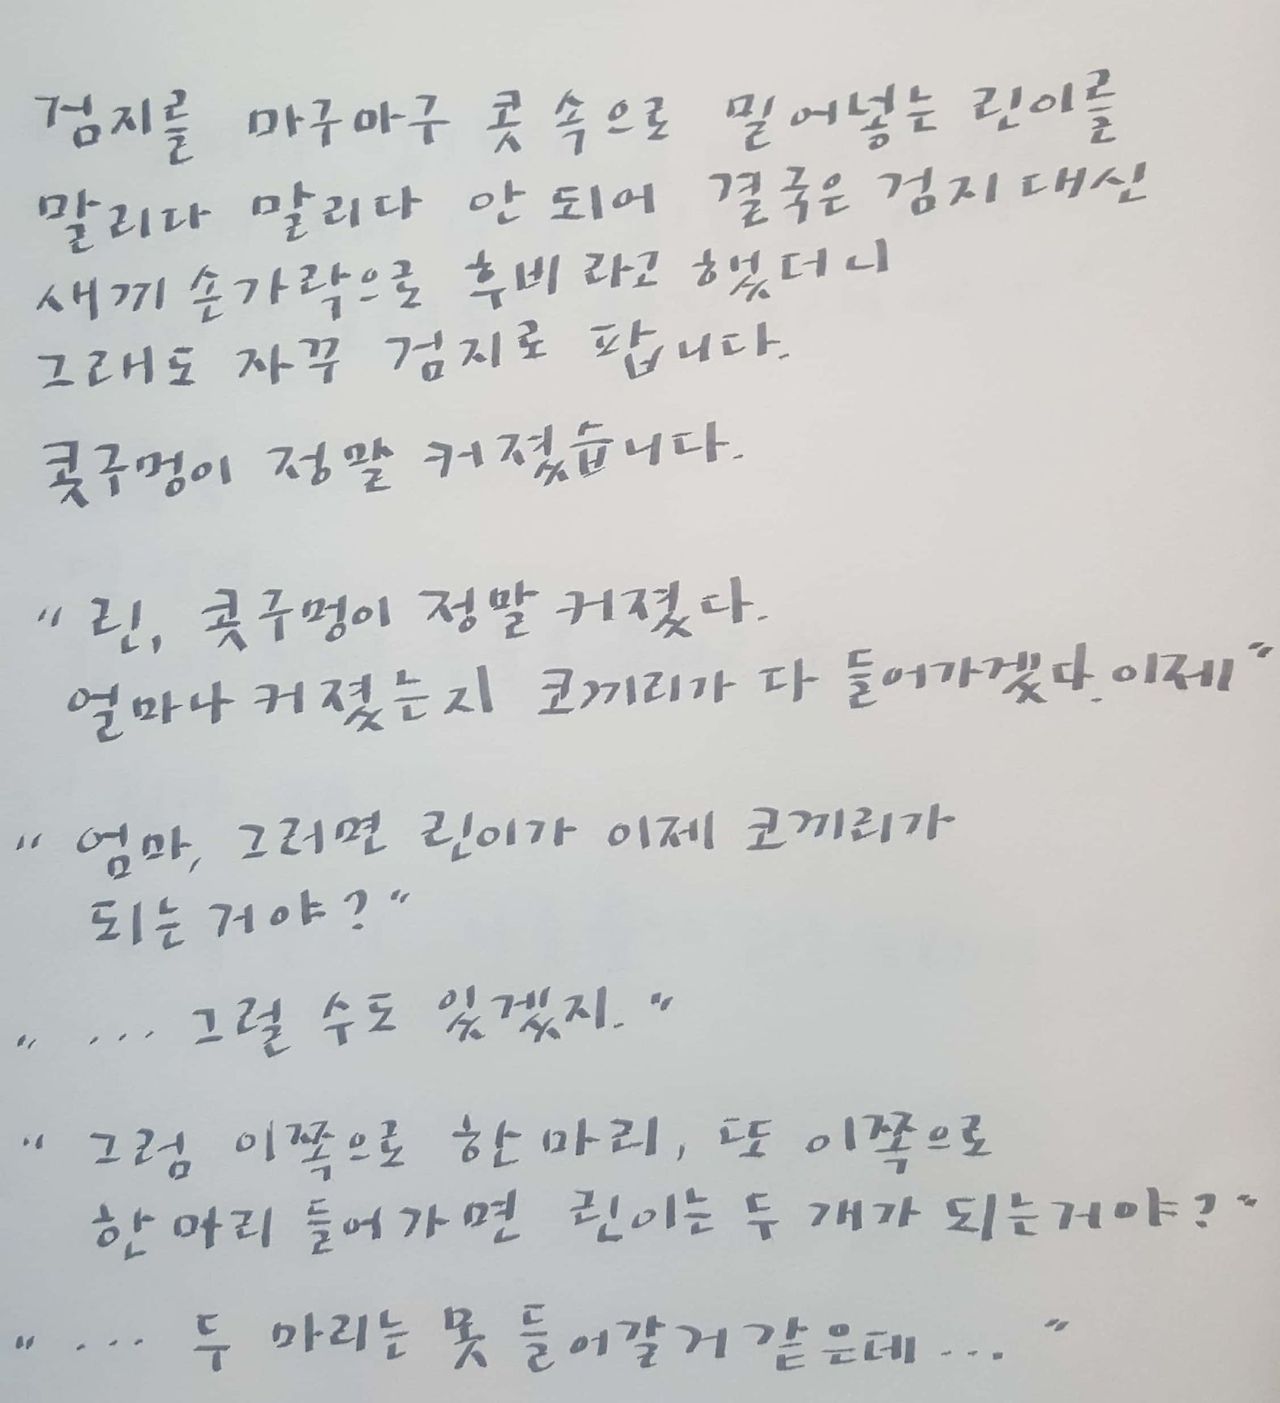 검지를 마구마구 콧 속으로 밀어넣는 린이를
말리다 말리다 안 되어 결국은 검지 대신
새끼 손가락으로 후비라고 했더니
그래도 자꾸 검지로 팝니다.
콧구멍이 정말 커졌습니다.
"린, 콧구멍이 정말 커졌다.
얼마나 커졌는지 코끼리가 다 들어가겠다. 이제"
"엄마, 그러면 린이가 이제 코끼리가
되는 거야?"
"... 그럴 수도 있겠지."
"그럼 이쪽으로 한 마리, 또 이쪽으로
한 마리 들어가면 린이는 두 개가 되는거야?"
"... 두 마리는 못 들어갈거 같은데..."